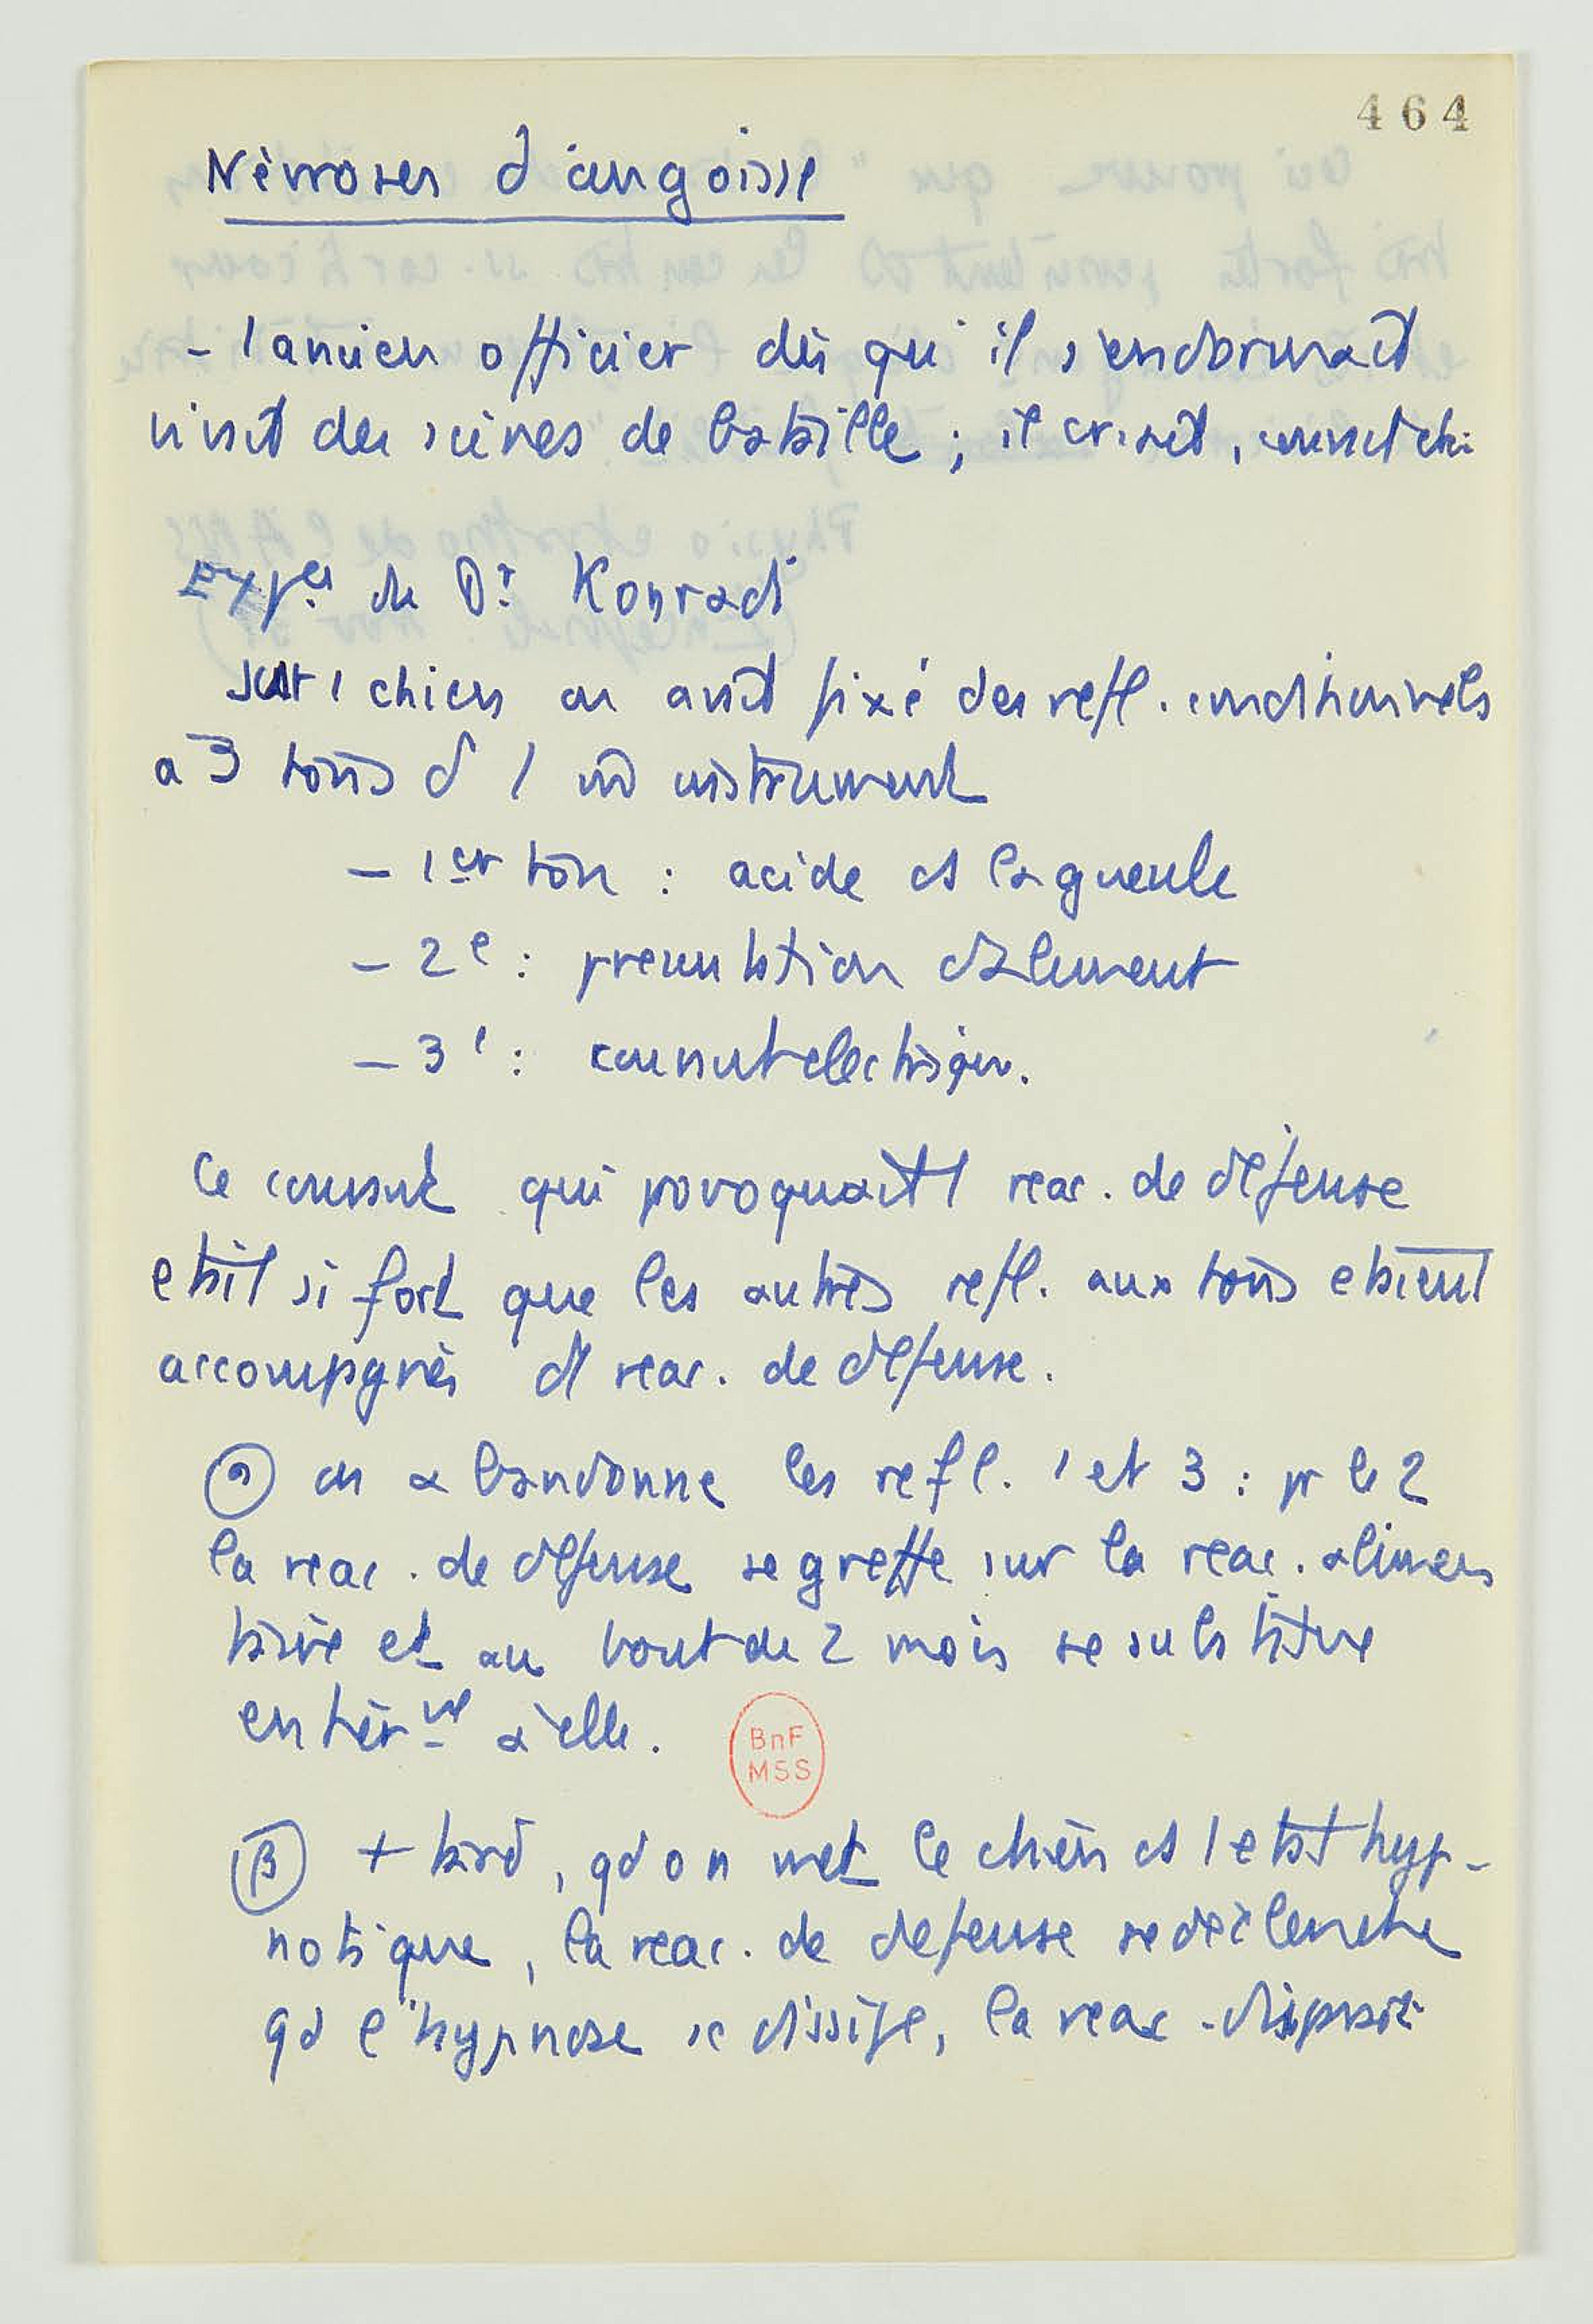 464
Névroses d'angoisse
- 1 ancien officier dès qu'il s'endormait
vivait des scènes de bataille ; il criait,
Expces du Dr Konradi
sur 1 chien on avait fixé des refl. conditionnels
a 3 tons d 1 m instrument
- 1er ton : acide ds la gueule
- 2e : presentation d'aliment
- 3e : courant electrique.
Ce courant qui provoquait 1 reac. de défense
etait si fort que les autres refl. aux tons etaient
accompagnés d'1 reac. de défense.
α on abandonne les refl. 1 et 3 : pr le 2
la reac. de défense se greffe sur la reac. alimen
taire et au bout de 2 mois se substitue
entièrmt à elle.
BnF
MSS
β + tard, qd on met le chien ds 1 etat hyp-
notique, la reac. de defense se déclenche
qd l'hypnose se dissipe, la reac. disparait